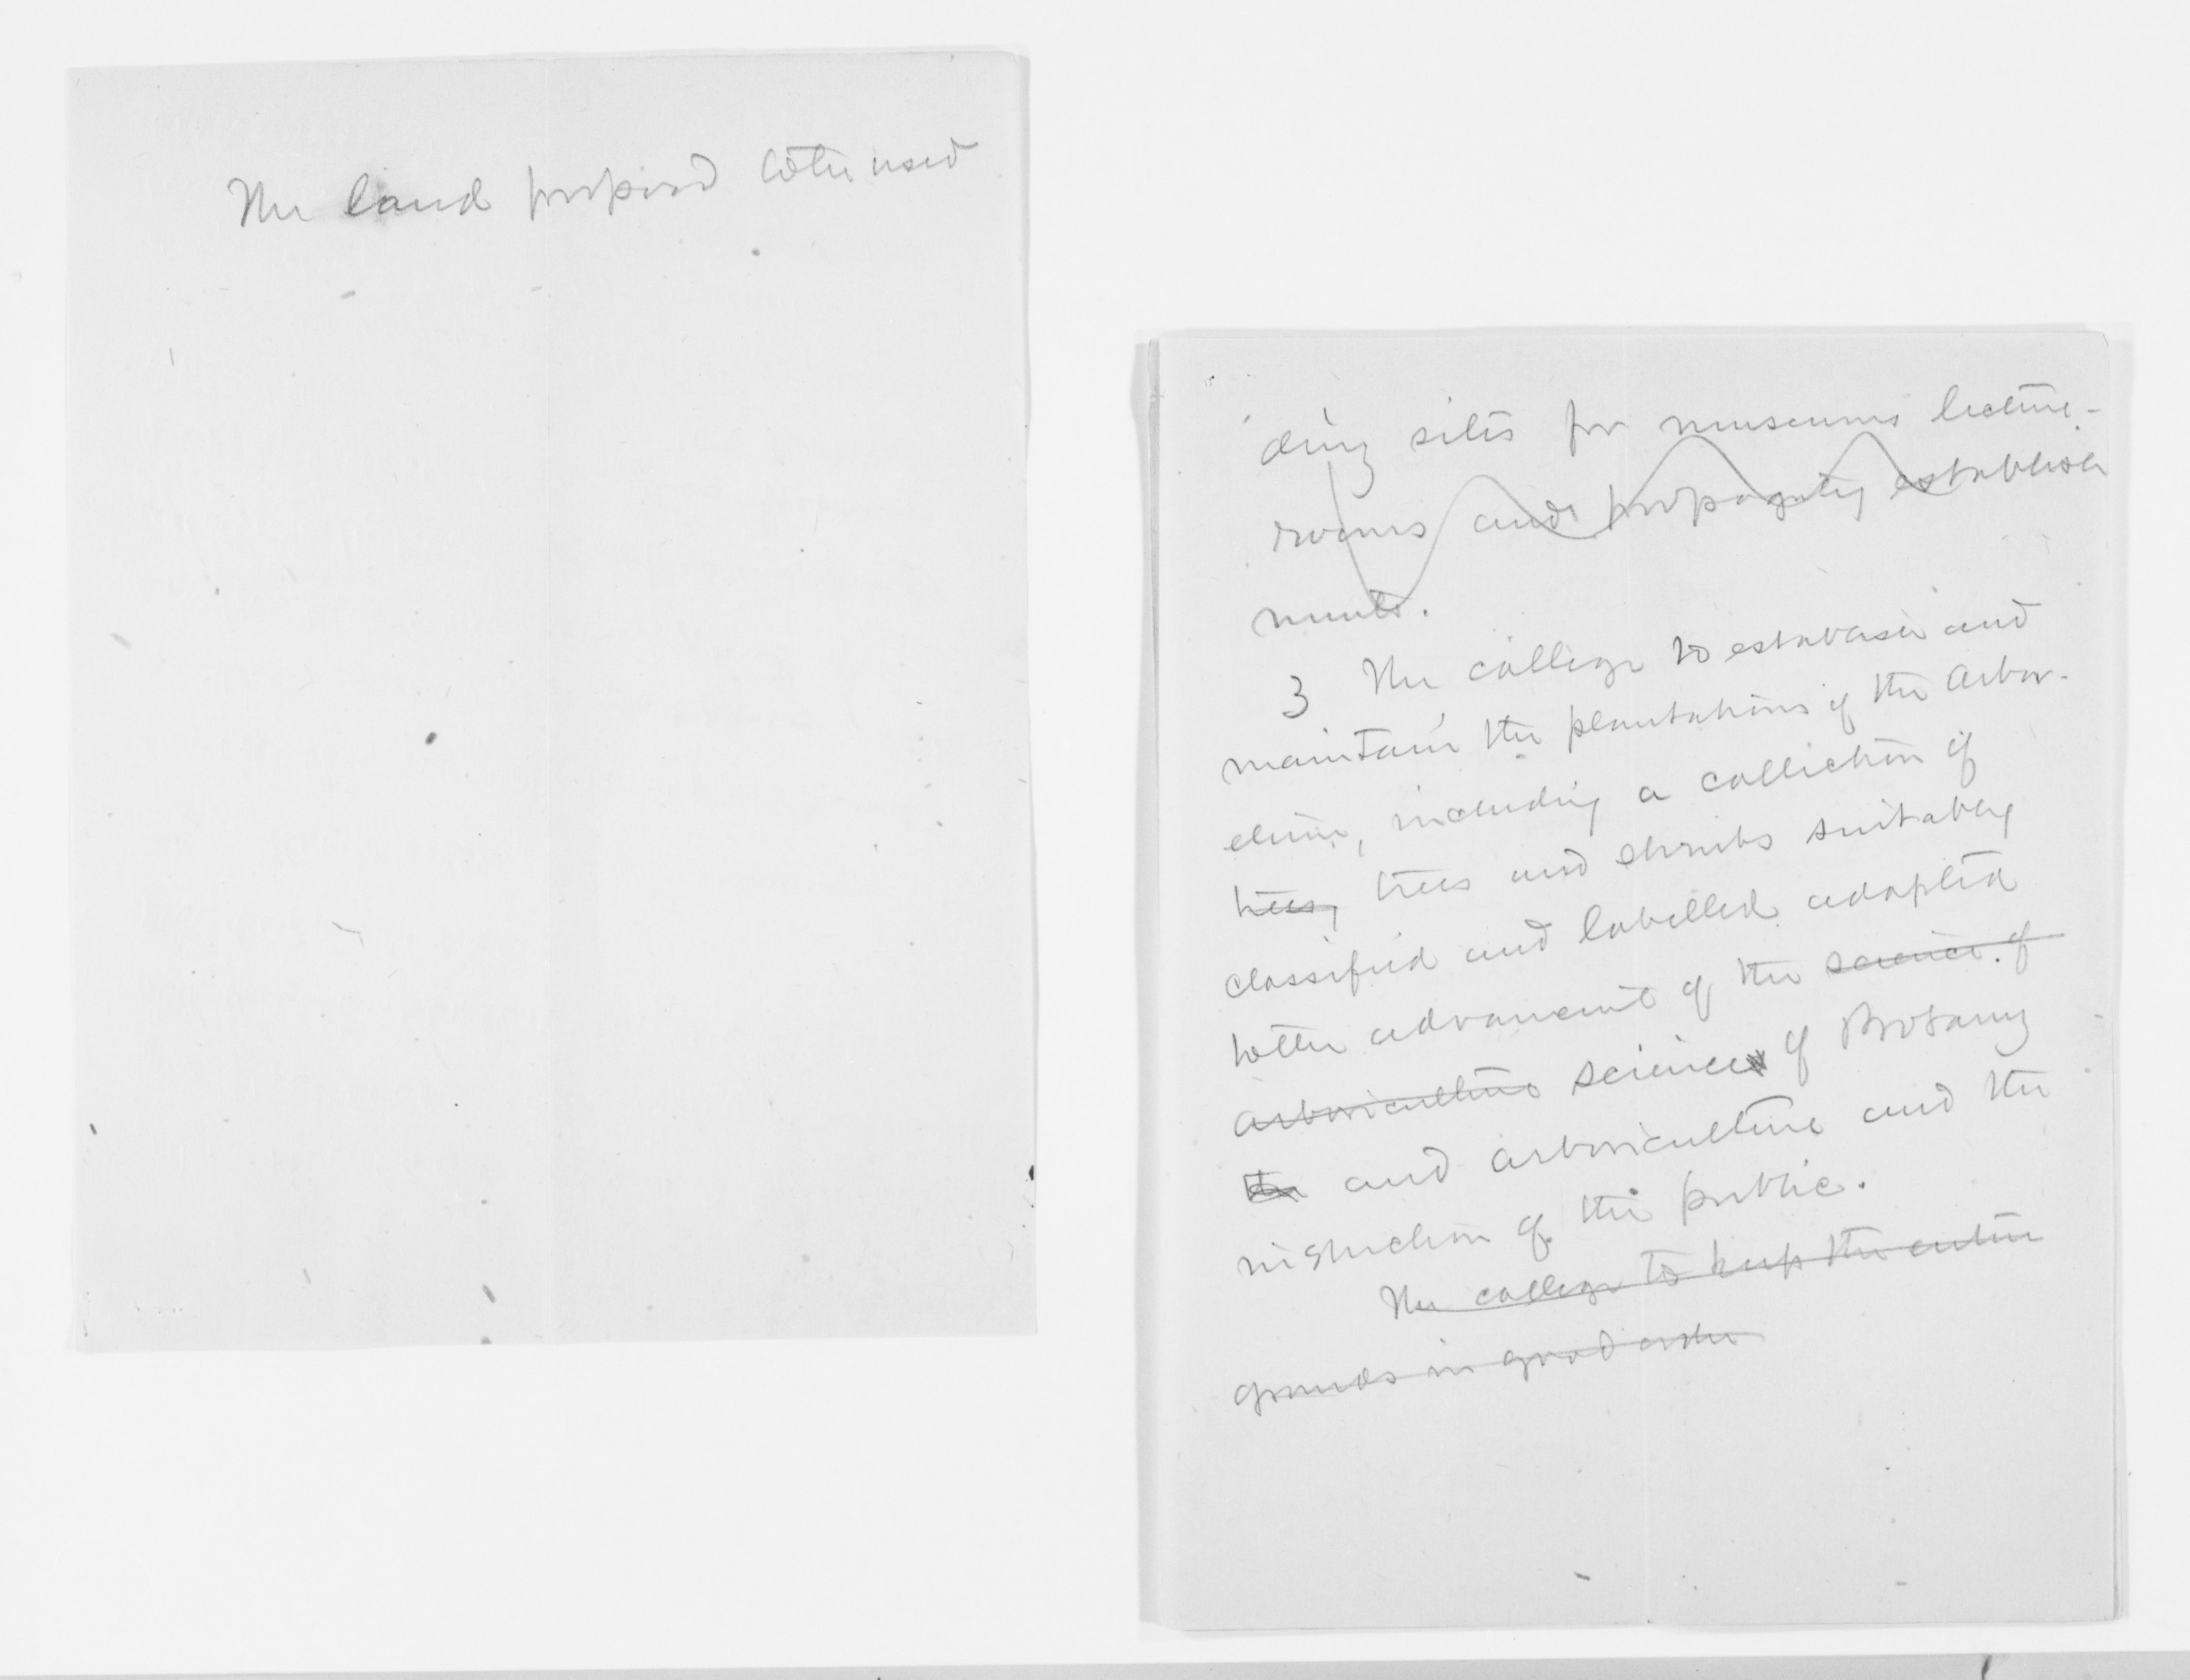 The land proposed to be used
ding sites for museums lecture-
rooms and propagating establish
ments.
3 The college to establish and
maintain the plantations of the Arbor-
etum, including a collection of
trees, trees and shrubs suitably
classified and labelled adapted
to the advancement of the science of
arboriculture science of Botany
the and arboriculture and the
instruction of the public.
The college to keep the entire
grounds in good order